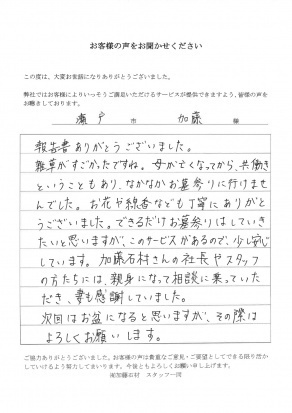 お客様の声をお聞かせください
この度は、大変お世話になりありがとうございました。
弊社ではお客様によりいっそうご満足いただけるサービスが提供できますよう、皆様の声を
お聴きしております。
瀬戸 市 加藤 様
報告書ありがとうございました。
雑草がすごかったですね。母が亡くなってから、共働き
ということもあり、なかなかお墓参りに行けませ
んでした。お花や線香なども丁寧にありがと
うございました。できるだけお墓参りはしていき
たいと思いますが、このサービスがあるので、少し安心
しています。加藤石材さんの社長やスタッフ
の方たちには、親身になって相談に乗っていた
だき、妻も感謝していました。
次回はお盆になると思いますが、その際は
よろしくお願いします。
ご協力ありがとうございました。お客様の声は貴重なご意見・ご要望としてできる限り活か
していけるよう努力してまいります。今後ともよろしくお願い申し上げます。
㈲加藤石材 スタッフ一同